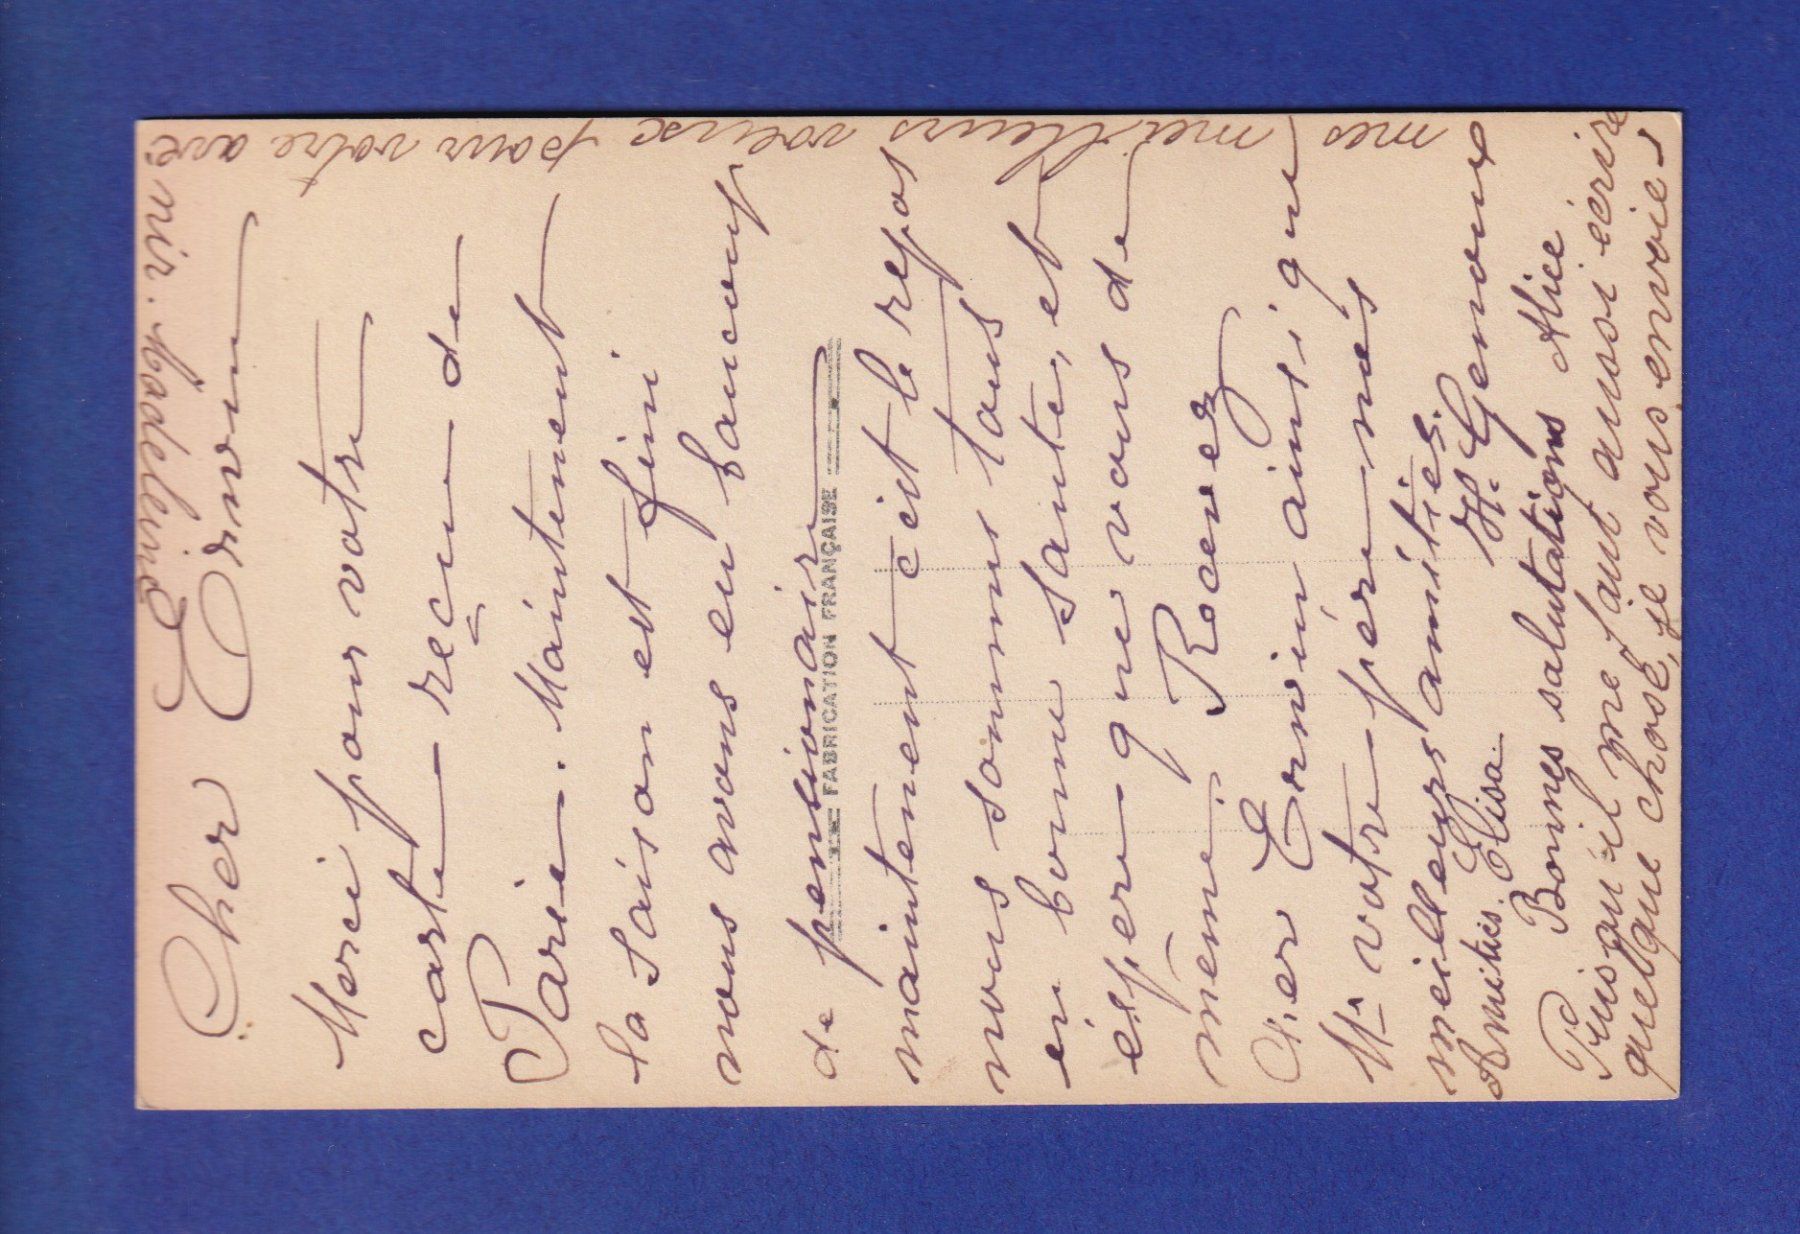 Cher Ervin
Merci pour votre
carte reçue de
Paris. Maintenent
la saison est fini
nous avons eu baucoup
de pensionaire
maintenent c'est le repos
nous sommes tous
en bonne sante, et
éspere que vous de
même. Recevez
cher Erwin ainsi que
Mr votre père mes
meilleurs amitiés.
H. Genoux
Amitiés. Elisa
Bonnes salutations Alice
Puisqu'il me faut aussi écrire
quelque chose, je vous envoie
mes meilleurs voeuse pour votre ave
nir. Madeleine
FABRICATION FRANÇAISE